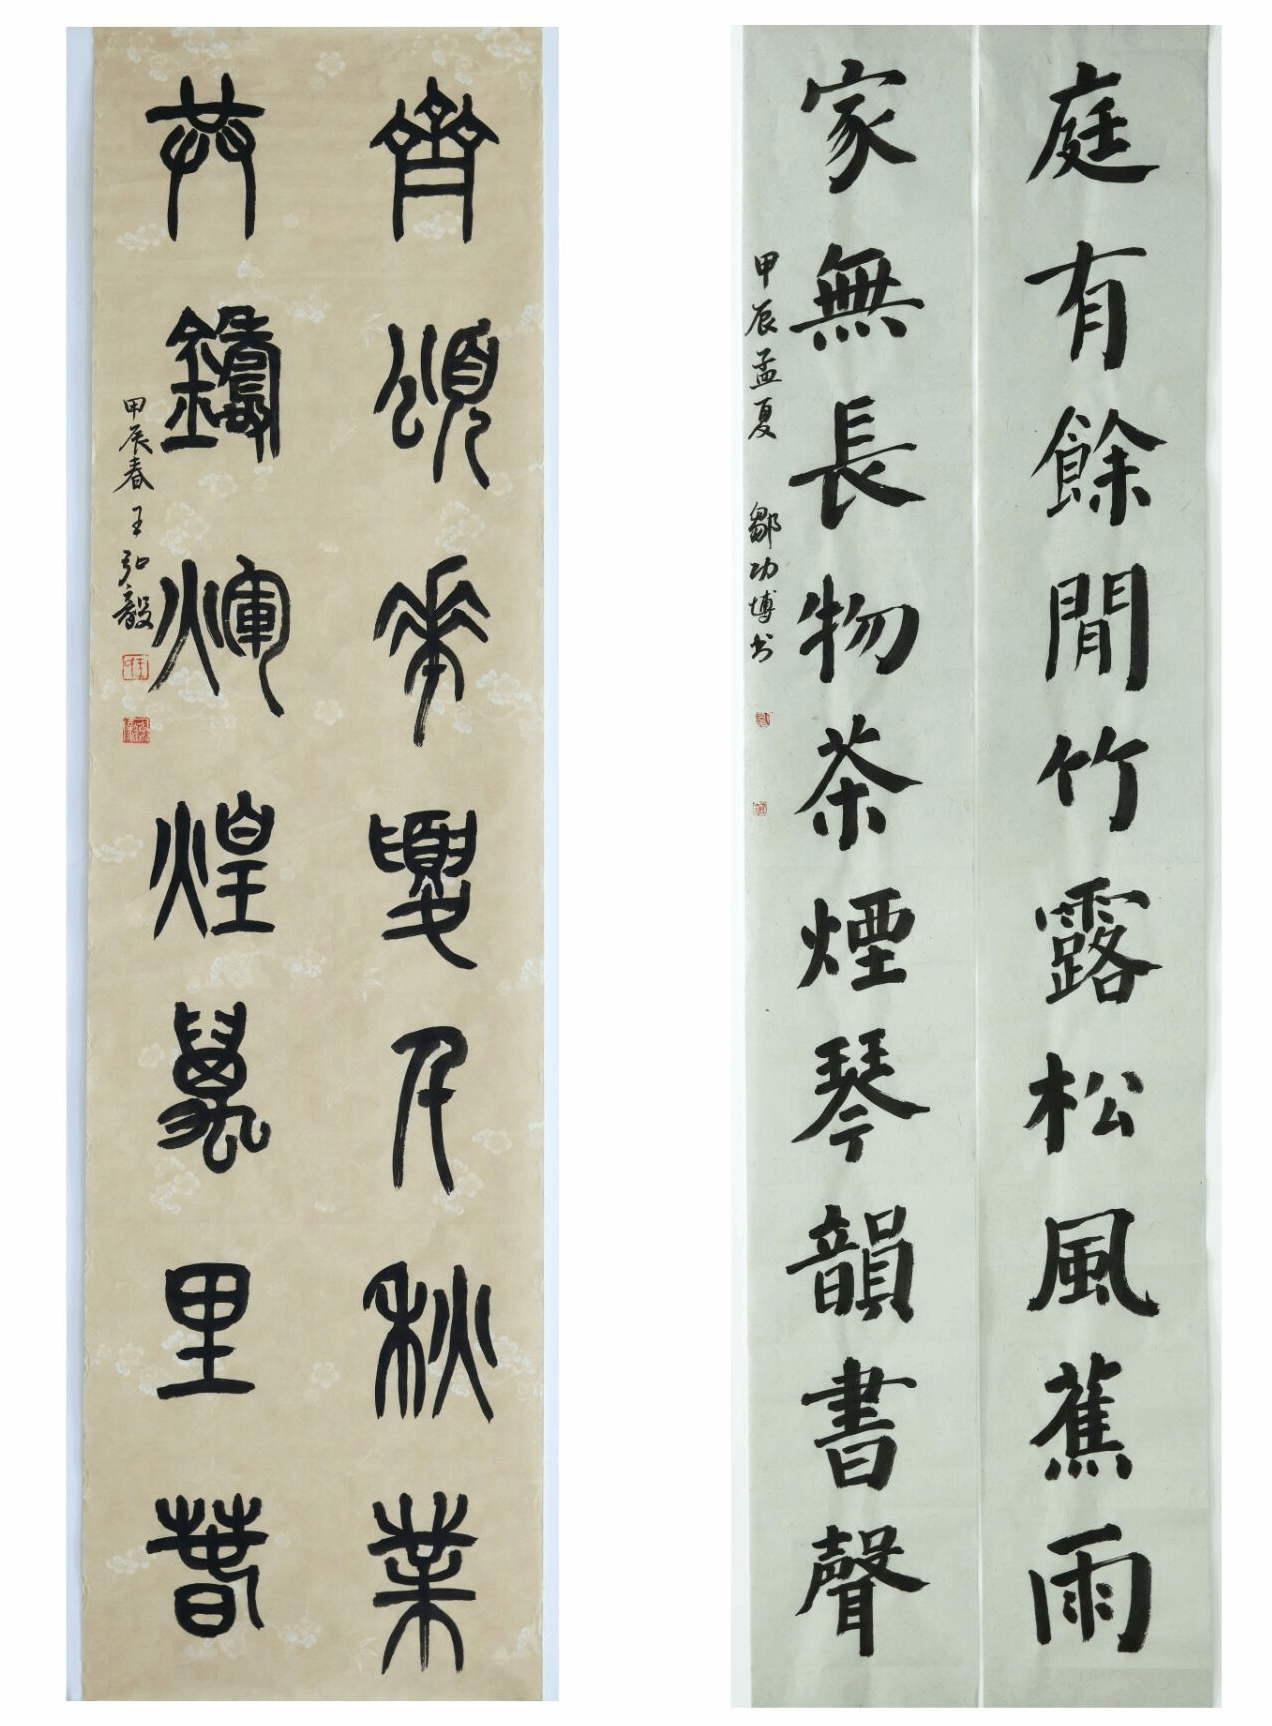 齊頌華夏千秋業
共鑄煇煌萬里春
甲辰春王弘毅
庭有餘閒竹露松風蕉雨
家無長物茶煙琴韻書聲
甲辰孟夏 鄒功博书